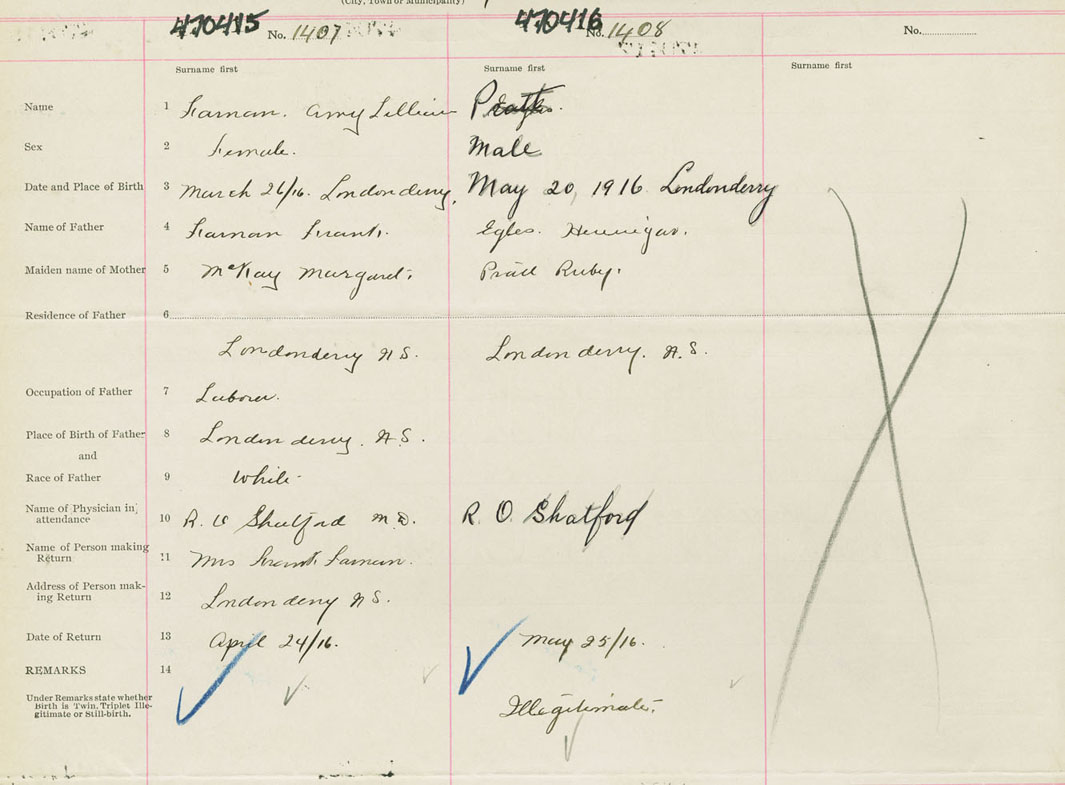 (City, Town or Municipality)
470415 No. 1407
470416 No. 1408
No.
Surname first
Surname first
Surname first
Name 1 Farnan. Amy Lillian
Sex 2 Female. Male
Date and Place of Birth 3 March 26/16. Londonderry, May 20, 1916 Londonderry
Name of Father 4 Farnan Frank. Egles. Hennigar.
Maiden name of Mother 5 McKay Margaret. Ruby.
Residence of Father 6
Londonderry N S. Londonderry. N. S.
Occupation of Father 7 Laborer.
Place of Birth of Father 8 Londonderry. N. S.
and
Race of Father 9 White
Name of Physician in attendance 10 R. O Shatford M. D. R. O. Shatford
Name of Person making Return 11 Mrs Frank Farnan.
Address of Person making Return 12 Londonderry N S.
Date of Return 13 April 24/16. May 25/16.
REMARKS 14
Under Remarks state whether
Birth is Twin, Triplet Ille-
gitimate or Still-birth.
Illegitimate.